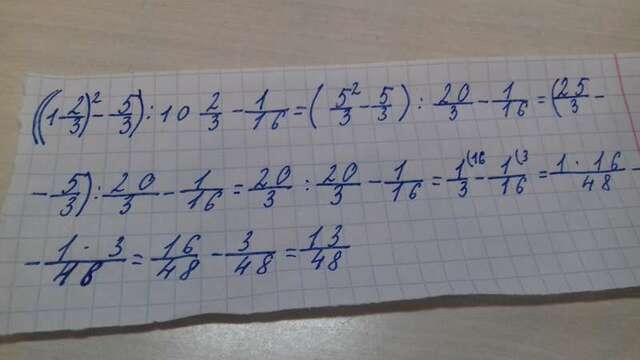 ((1 2/3)² - 5/3) : 10 2/3 - 1/16 = (5²/3 - 5/3) : 20/3 - 1/16 = (25/3 -
- 5/3) : 20/3 - 1/16 = 20/3 : 20/3 - 1/16 = 1(16/3 - 1(3/16 = 1·16/48 -
- 1·3/48 = 16/48 - 3/48 = 13/48